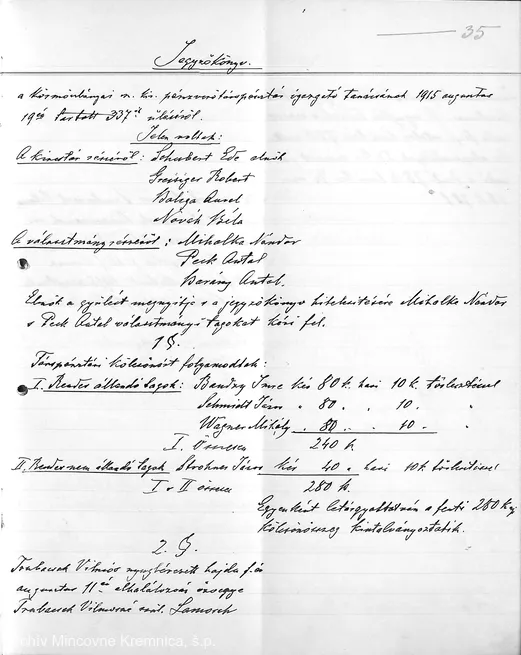 35
Jegyzőkönyv.
a körmöczbányai m. kir. pénzverőtárspénztár igazgató tanácsának 1915 augusztus
19én tartott 337ik üléséről.
Jelen voltak:
A kincstár részéről: Schubert Ede elnök
Greisiger Robert
Baliga Aurel
Novák Béla
A választmány részéről: Mihalka Nándor
Peck Antal
Barány Antal.
Elnök a gyűlést megnyitja s a jegyzőkönyv hitelesítésére Mihalka Nándor
s Peck Antal választmányi tagokat kéri fel.
1 §.
Társpénztári kölcsönért folyamodtak:
I. Rendes állandó tagok: Imre kér 80 k. havi 10 k. törlesztéssel
Schmidt János „ 80 „ „ 10 „ „
Wagner Mihály „ 80 „ „ 10 „ „
I. Összesen 240 k
II. Rendes nem állandó tagok Strohner János kér 40 „ havi 10k törlesztéssel
I + II összesen 280 k.
Egyenként letárgyaltatván a fenti 280 k
kölcsönösszeg kiutalványoztatik.
2. §.
Trabacsek Vilmos nyugbéres hajdu f. év
augusztus 11én elhalálozván özvegye
Trabacsek Vilmosné szül.
Archív Mincovne Kremnica, š.p.